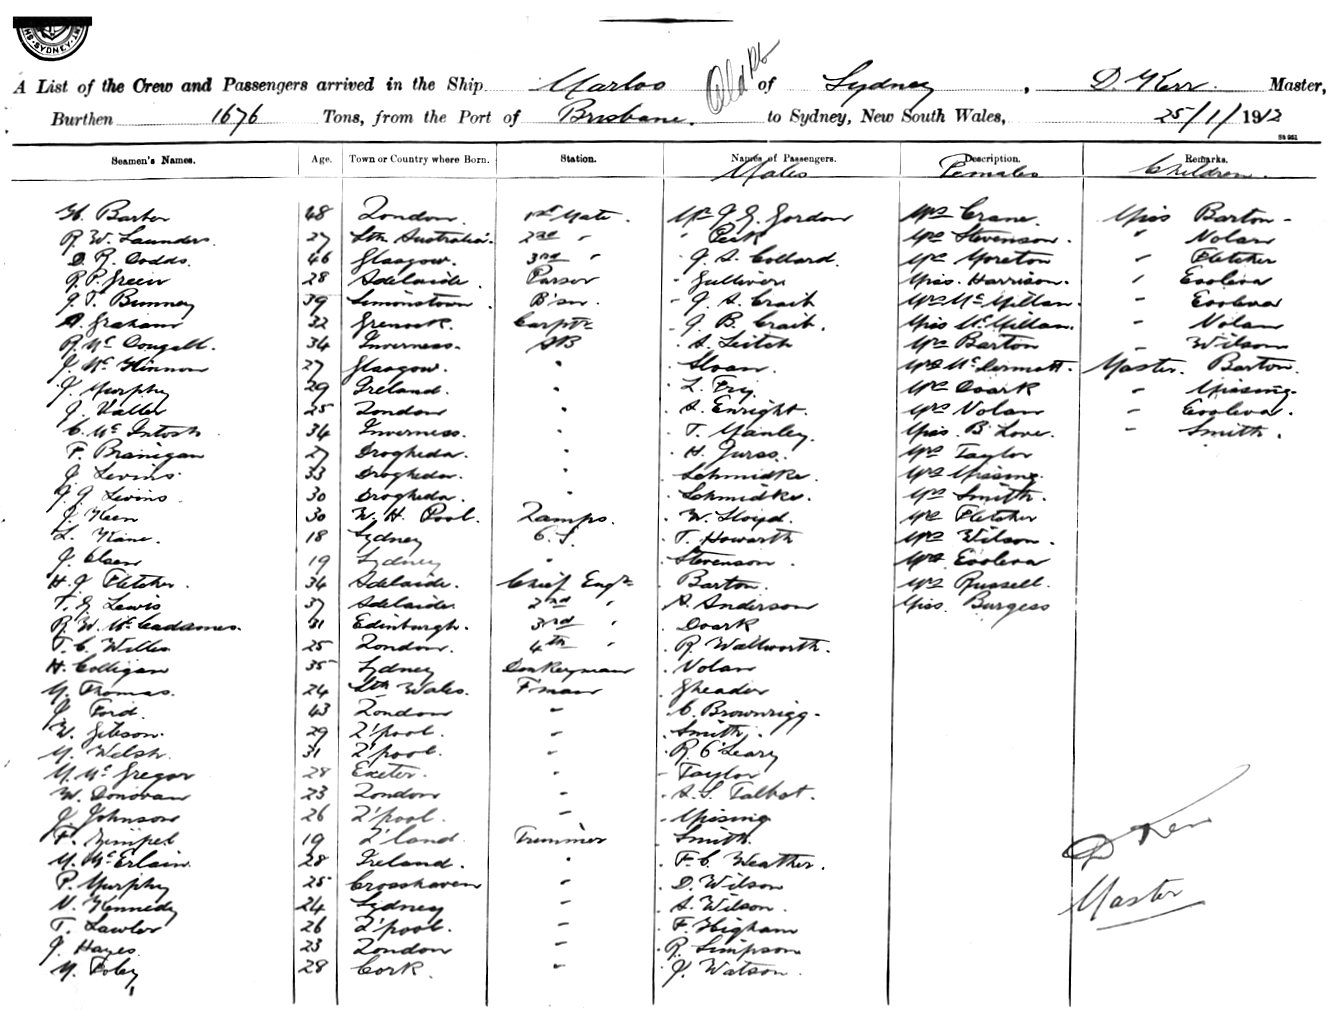 SYDNEY
A List of the Crew and Passengers arrived in the Ship Marloo of Sydney, D. Kerr Master,
Burthen 1676 Tons, from the Port of Brisbane. to Sydney, New South Wales, 25/1/1912
Seamen's Names. Age. Town or Country where Born. Station. Names of Passengers. Description. Remarks.
Males Females Children.
H. Barber 48 London. 1st Mate. Mr J. G. Gordon Mrs Crane. Miss Barton -
R. W. Saunders. 27 Sth Australia. 2nd " " Peek Mrs Stevenson. " Nolan
D. R. Dodds. 46 Glasgow. 3rd " . G. A. Collard. Mrs Moreton " Fletcher
R. P. Green 28 Adelaide. Purser - Gulliver Miss. Harrison. "
J. T. Binney 39 Simonstown B'sn. - J. A. Mrs McMillan. -
A. Graham 32 Grenock. Carptr - J. B. Miss McMillan. - Nolan
R. McDougall. 34 Inverness. AB . A. Leitch Mrs Barton - Wilson
J. McKinnon 27 Glasgow. " . Sloan. Mrs McDermott. Master. Barton.
J. Murphy 29 Ireland. " . L. Fry. Mrs Doark "
J. Valler 25 London " . A. Enright. Mrs Nolan -
C. McIntosh 34 Inverness. " . T. Manley. Miss. B. Love. - Smith.
P. Branigan 27 Drogheda. " . H. Mrs Taylor
J. Levins 33 Drogheda. " . Schmidke Mrs
J. J. Levins 30 Drogheda. " . Schmidke. Mrs Smith.
J. Keen 30 W. H. Pool. Lamps. . W. Lloyd. Mrs Fletcher
L. Kane. 18 Sydney O.S. . T. Howarth Mrs Wilson.
J. Olsen 19 Sydney " . Stevenson. Mrs
H. J. Fletcher. 34 Adelaide. Chief Engr . Barton. Mrs Russell.
T. G. Lewis 37 Adelaide. 2nd " . A. Anderson Miss. Burgess
R. W. McCadames. 31 Edinburgh. 3rd " . Doark
T. C. Willis 25 London. 4th " . R. Wallworth.
H. Colligan 35 Sydney Donkeyman . Nolan
M. Thomas. 24 Sth Wales. F'man . Gheader
J. Ford. 43 London " . C. Brownrigg.
W. Gibson. 29 L'pool. " . Smith.
M. Welsh. 31 L'pool. " . R. O'Leary
M. McGregor 28 Exeter. " - Taylor
W. Donovan 23 London " . A. S. Talbot.
J. Johnson 26 L'pool. "
F. Kimpel 19 Trimmer . Smith.
M. McErlain. 28 Ireland. " . F. C. Weather.
P. Murphy 25 Crosshaven " . D. Wilson
N. Kennedy 24 Sydney " . A. Wilson.
T. Lawler 26 L'pool. " . F. Higham
J. Hayes 23 London " . R. Simpson
M. Foley 28 Cork. " . J. Watson.
D Kerr
Master